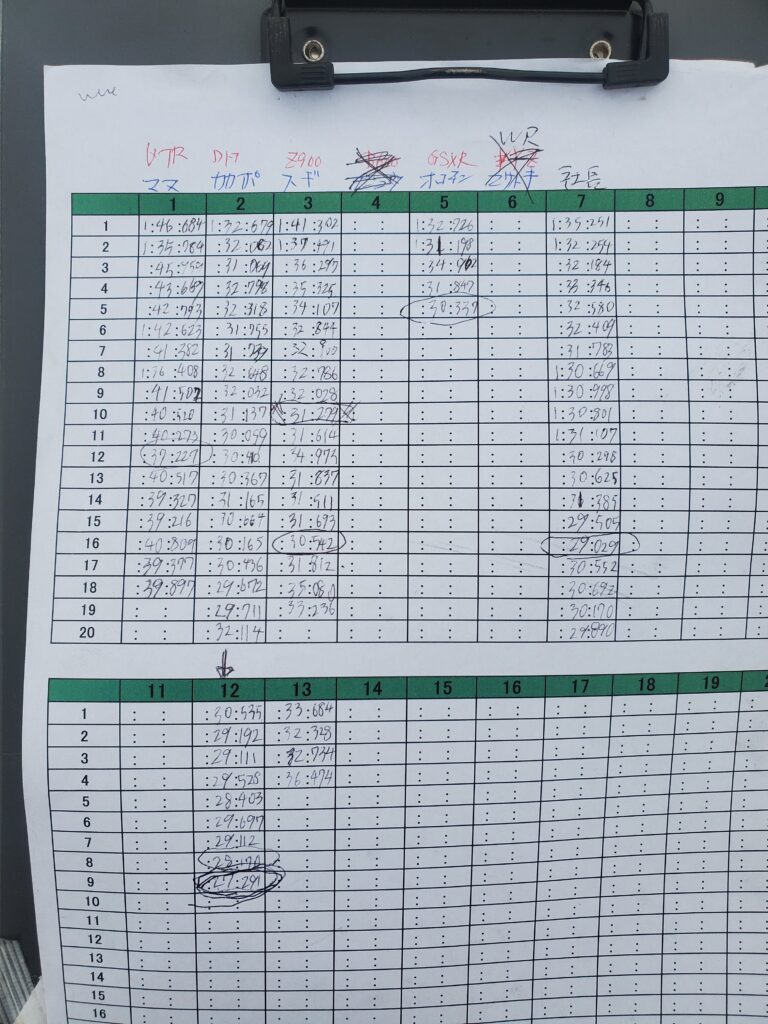 WR
VTR D17 Z900 GSXR
ママ カカポ スギ 社長
1 2 3 4 5 6 7 8 9
1 1:46:684 1:32:679 1:41:302 : : 1:32:726 : : 1:35:251 : : : :
2 1:35:784 :32:062 1:37:491 : : 1:31:198 : : 1:32:254 : : : :
3 :45: :31:069 :36:297 : : :34:902 : : :32:184 : : : :
4 :43:667 :32:798 :35:325 : : :31:847 : : :33:346 : : : :
5 :42:793 :32:318 :34:107 : : :30:337 : : :32:580 : : : :
6 1:42:623 :31:755 :32:844 : : : : : : :32:409 : : : :
7 :41:382 :31: :32: : : : : : : :31:783 : : : :
8 1:36:408 :32:648 :32:786 : : : : : : 1:30:669 : : : :
9 :41:507 :32:032 :32:028 : : : : : : 1:30:998 : : : :
10 :40:520 :31:137 :31:279 : : : : : : 1:30:801 : : : :
11 :40:273 :30:059 :31:614 : : : : : : 1:31:107 : : : :
12 :37:227 :30: :34:973 : : : : : : :30:298 : : : :
13 :40:517 :30:367 :31:837 : : : : : : :30:625 : : : :
14 :39:327 :31:165 :31:511 : : : : : : :31:385 : : : :
15 :39:216 :30:664 :31:693 : : : : : : :29:505 : : : :
16 :40:809 :30:165 :30:542 : : : : : : :29:029 : : : :
17 :39:377 :30:436 :31:812 : : : : : : :30:552 : : : :
18 :39:897 :29:672 :35:080 : : : : : : :30:692 : : : :
19 : : :29:711 :33:236 : : : : : : :30:170 : : : :
20 : : :32:114 : : : : : : : : :29:890 : : : :
11 12 13 14 15 16 17 18 19
1 : : :30:535 :33:684 : : : : : : : : : : : :
2 : : :29:192 :32:328 : : : : : : : : : : : :
3 : : :29:111 :32:734 : : : : : : : : : : : :
4 : : :29:528 :36:474 : : : : : : : : : : : :
5 : : :28:403 : : : : : : : : : : : : : :
6 : : :29:697 : : : : : : : : : : : : : :
7 : : :29:112 : : : : : : : : : : : : : :
8 : : :28:170 : : : : : : : : : : : : : :
9 : : :27:291 : : : : : : : : : : : : : :
10 : : : : : : : : : : : : : : : : : :
11 : : : : : : : : : : : : : : : : : :
12 : : : : : : : : : : : : : : : : : :
13 : : : : : : : : : : : : : : : : : :
14 : : : : : : : : : : : : : : : : : :
15 : : : : : : : : : : : : : : : : : :
16 : : : : : : : : : : : : : : : : : :